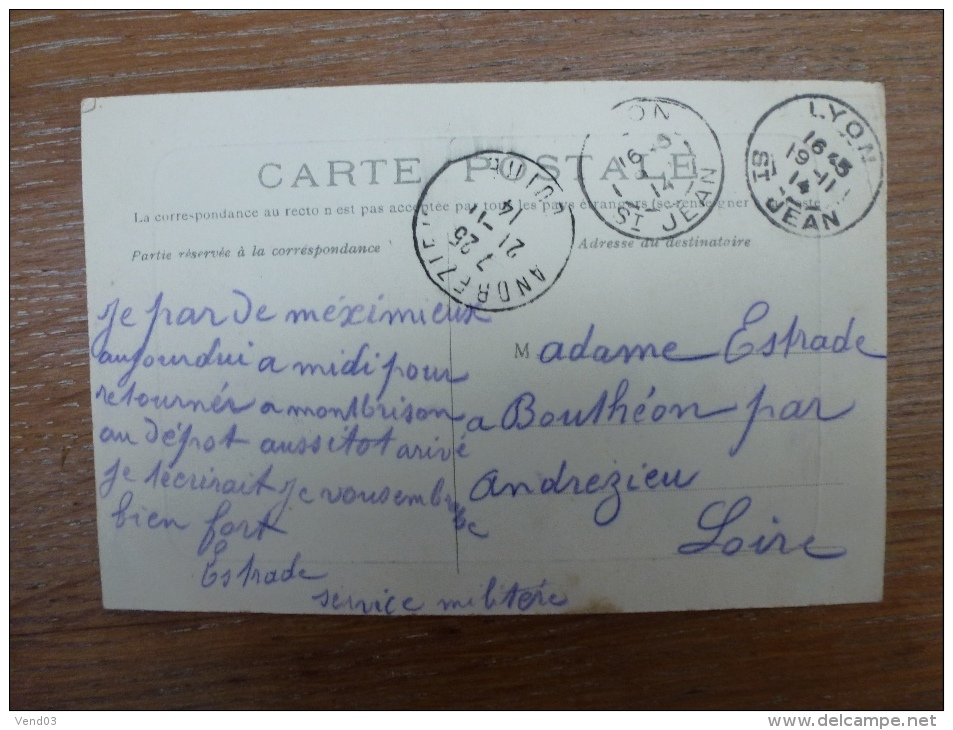 CARTE POSTALE
La correspondance au recto n'est pas acceptée par tous les pays étrangers (se renseigner
Partie réservée à la correspondance
Adresse du destinataire
je par de méximieux
aujourdui a midi pour
retournér a montbrison
au dépot aussitot arivé
je técrirait je vous embrasse
bien fort
Estrade
service militére
Madame Estrade
a Bouthéon par
andrezieu
Loire
ANDREZIEUX LOIRE
7 25
21 -11
14
16
14
ST JEAN
LYON
16 45
19 -11
14
ST JEAN
Vend03
www.delcampe.net